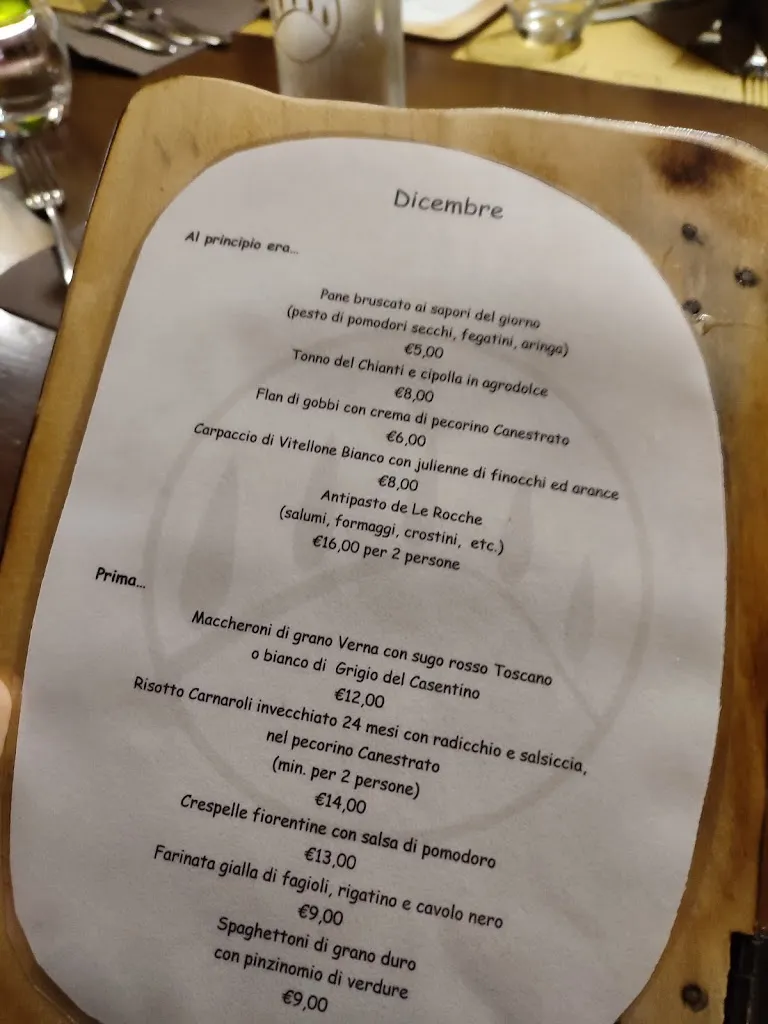 Dicembre
Al principio era...
Pane bruscato ai sapori del giorno
(pesto di pomodori secchi, fegatini, aringa)
€5,00
Tonno del Chianti e cipolla in agrodolce
€8,00
Flan di gobbi con crema di pecorino Canestrato
€6,00
Carpaccio di Vitellone Bianco con julienne di finocchi ed arance
€8,00
Antipasto de Le Rocche
(salumi, formaggi, crostini, etc.)
€16,00 per 2 persone
Prima...
Maccheroni di grano Verna con sugo rosso Toscano
o bianco di Grigio del Casentino
€12,00
Risotto Carnaroli invecchiato 24 mesi con radicchio e salsiccia,
nel pecorino Canestrato
(min. per 2 persone)
€14,00
Crespelle fiorentine con salsa di pomodoro
€13,00
Farinata gialla di fagioli, rigatino e cavolo nero
€9,00
Spaghettoni di grano duro
con pinzinomio di verdure
€9,00